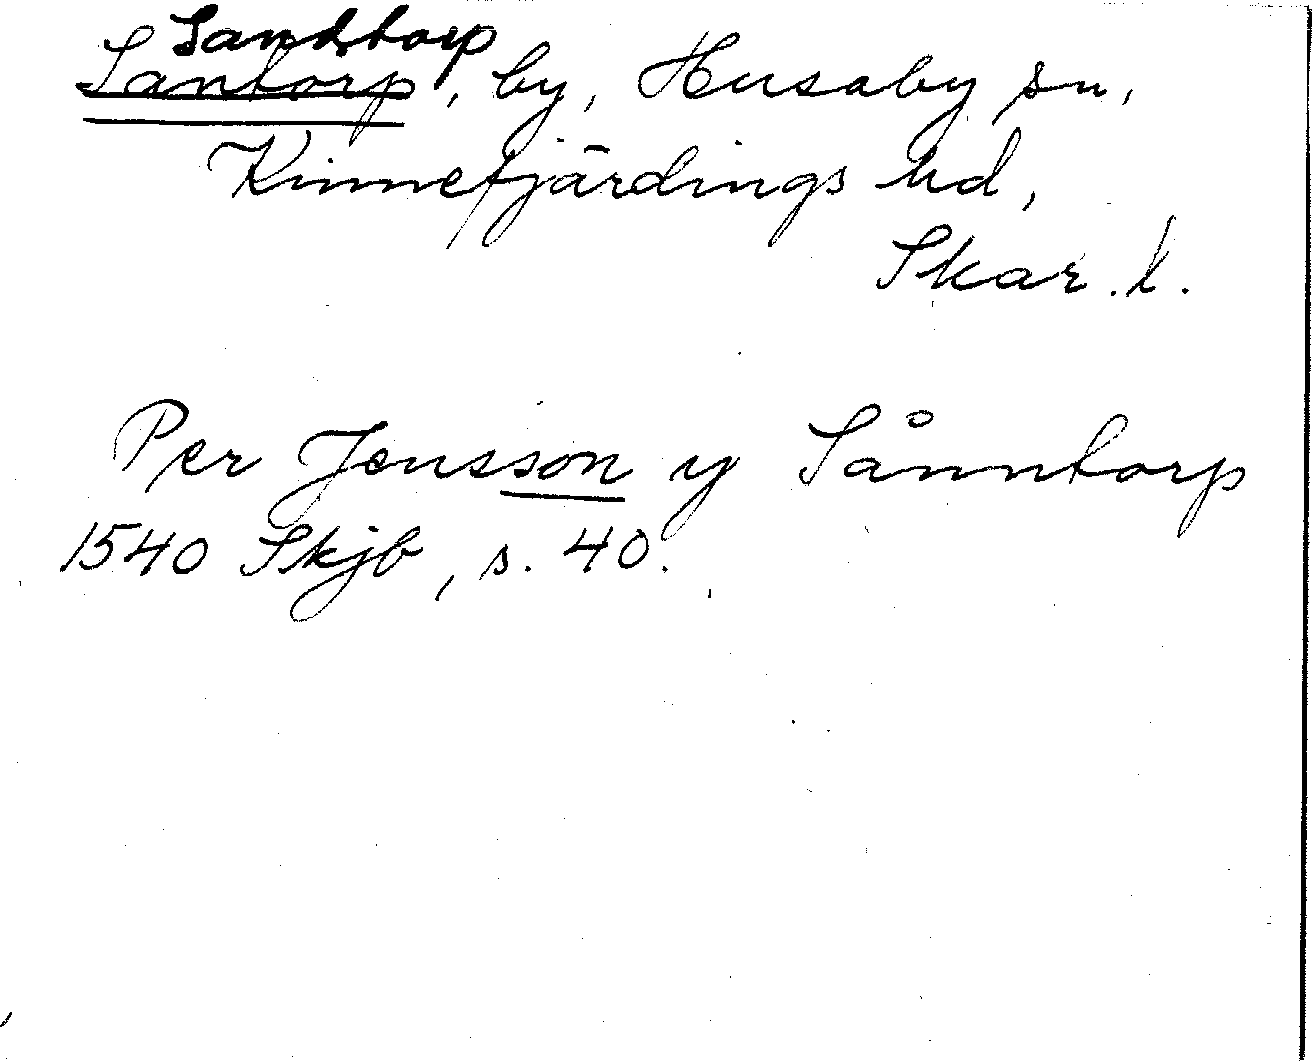 Sandtorp
Santorp, by, Husaby sn,
Kinnefjärdings hd,
Skar. l.
Per Jensson y Sånntorp
1540 Skjb, s. 40.